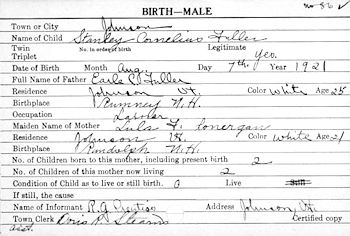 no 86 ✓
BIRTH—MALE
Town or City Johnson
Name of Child Stanley Cornelius Fuller
Twin
Triplet No. in order of birth Legitimate Yes.
Date of Birth Month Aug. Day 7th. Year 1921
Full Name of Father Earle C. Fuller
Residence Johnson Vt. Color White Age 25
Birthplace Rumney N.H.
Occupation Laborer
Maiden Name of Mother Lula F. onergan
Residence Johnson Vt. Color White Age 21
Birthplace Randolph N.H.
No. of Children born to this mother, including present birth 2
No. of Children of this mother now living 2
Condition of Child as to live or still birth. 0 Live Still
If still, the cause
Name of Informant R.G. Address Johnson, Vt.
Town Clerk Doris R. Stearns Certified copy
asst.